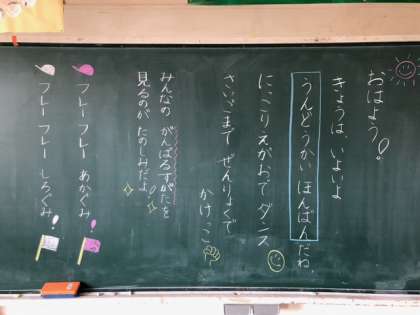 おはよう!
きょうは いよいよ
うんどうかい ほんばんだね。
にっこりえがおで ダンス
さいごまで ぜんりょくで
かけっこ
みんなの がんばるすがたを
見るのが たのしみだよ!
フレーフレー あかぐみ!
フレーフレー しろぐみ!